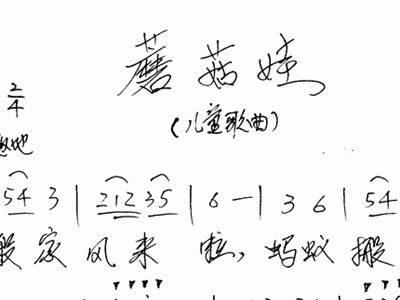 蘑菇娃
（儿童歌曲）
2/4
地
54 3 | 212 35 | 6 — | 3 6 | 54
家 风 来 啦，蚂蚁 搬